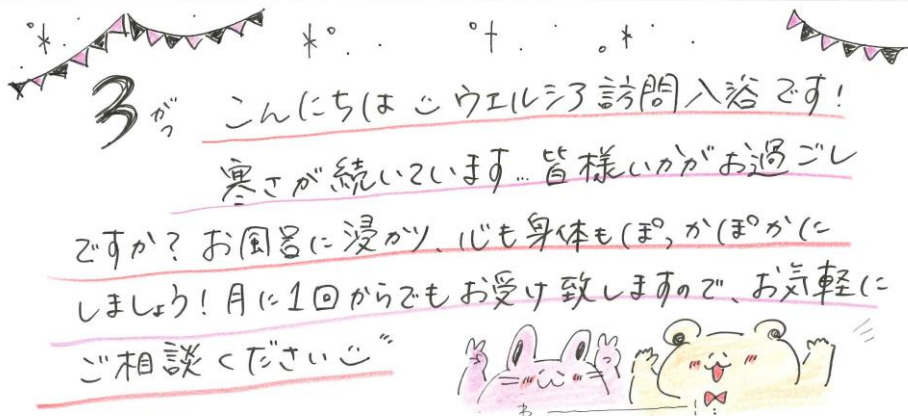 3がつ
こんにちは ウエルシア訪問入浴です!
寒さが続いています…皆様いかがお過ごし
ですか? お風呂に浸かり、心も身体もぽっかぽかに
しましょう!月に1回からでもお受け致しますので、お気軽に
ご相談ください
わ